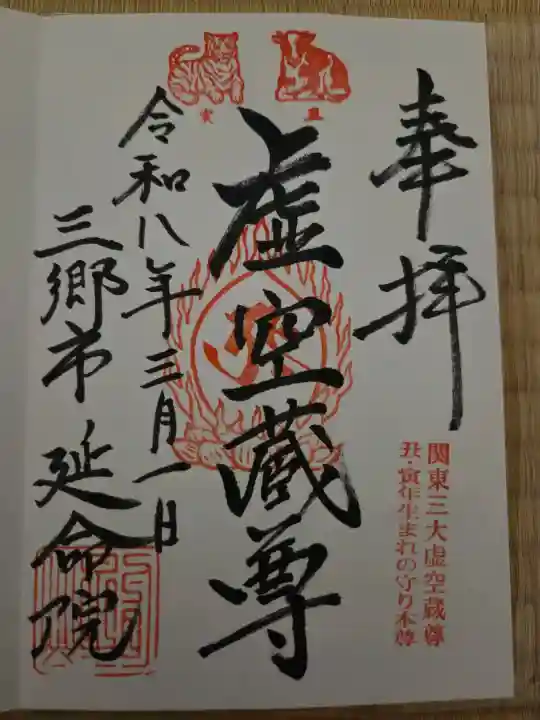 奉拝
関東三大虚空蔵尊
丑・寅年生まれの守り本尊
丑
寅
虚空蔵尊
令和八年三月一日
三郷市 延命院